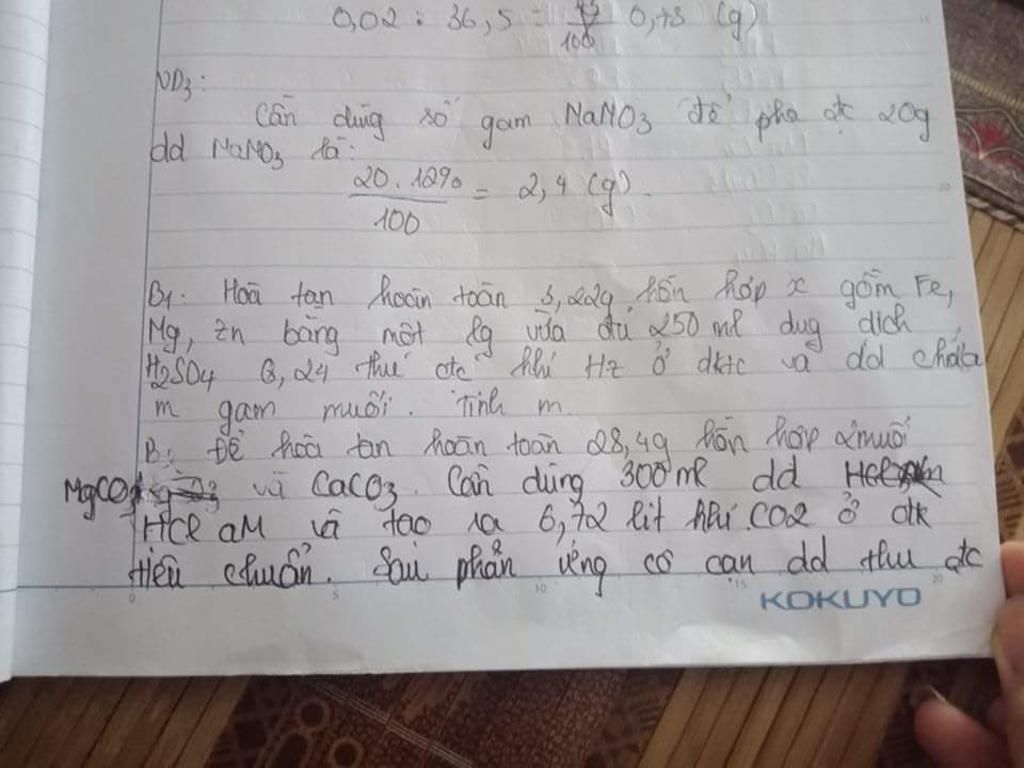 0,02 : 36,5 = 73/100 0,73 (g)
VD3:
Cần dùng số gam NaNO3 để pha đc 20g
dd NaNO3 là:
20 . 12% / 100 = 2,4 (g).
B1: Hoà tan hoàn toàn 3,22g hỗn hợp x gồm Fe,
Mg, Zn bằng một lg vừa đủ 250 ml dug dịch
H2SO4 0,24 thu đc khí H2 ở dktc và dd chứa
m gam muối. Tính m
B: Để hoà tan hoàn toàn 28,4g hỗn hợp 2 muối
MgCO3 và CaCO3. Cần dùng 300 ml dd
HCl aM và tạo ra 6,72 lít khí CO2 ở đk
tiêu chuẩn. Sau phản ứng cô cạn dd thu đc
KOKUYO